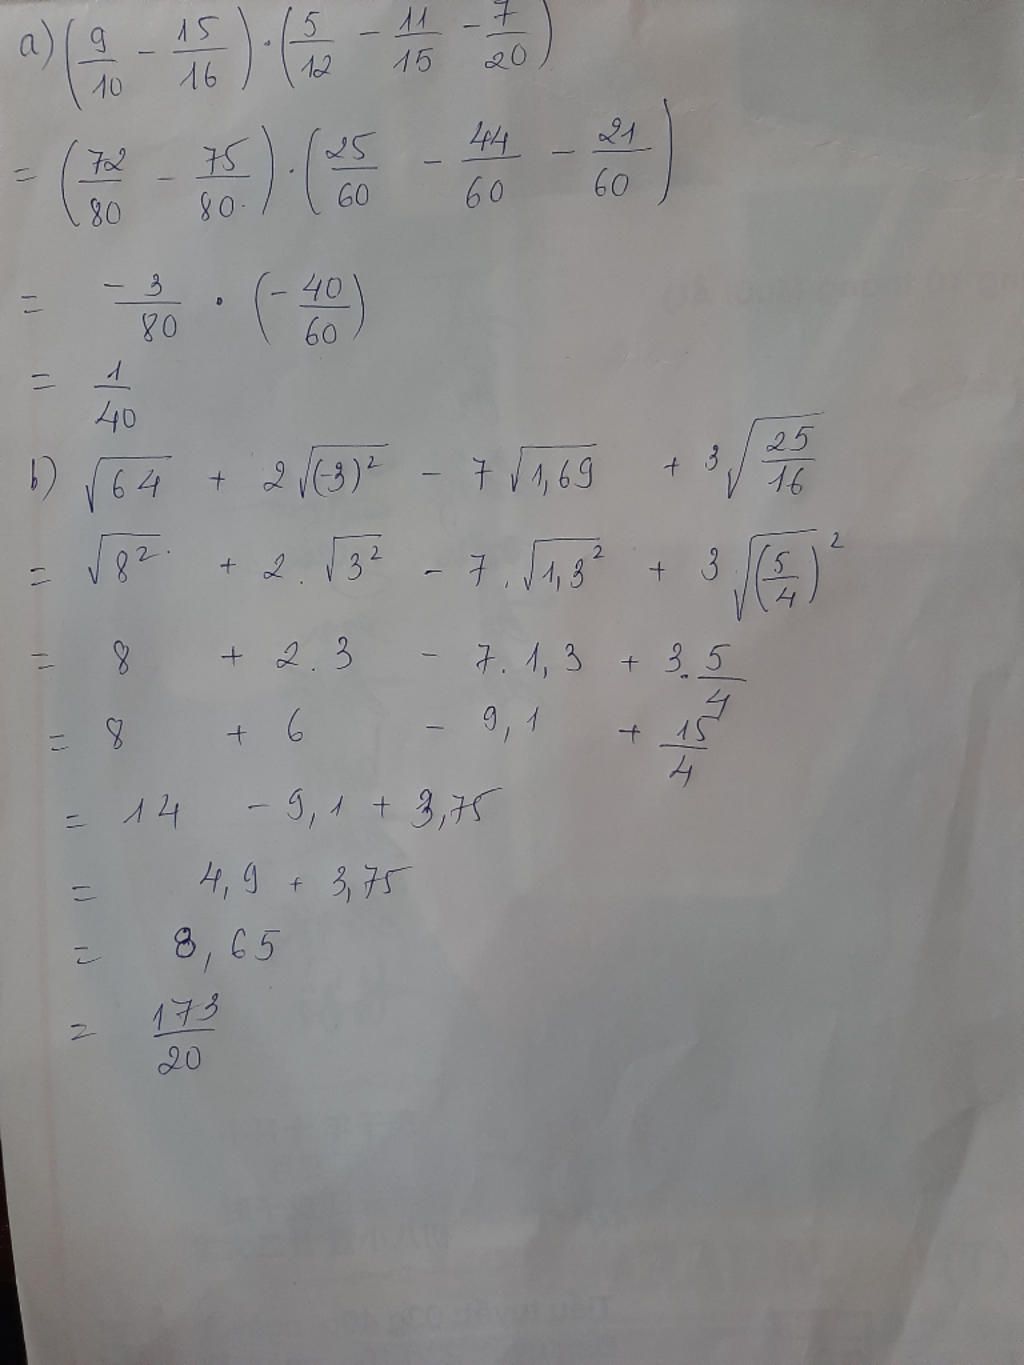 a) (9/10 - 15/16) . (5/12 - 11/15 - 7/20)
= (72/80 - 75/80) . (25/60 - 44/60 - 21/60)
= -3/80 . (-40/60)
= 1/40
b) √64 + 2√(-3)² - 7√1,69 + 3√(25/16)
= √8² + 2.√3² - 7.√1,3² + 3√(5/4)²
= 8 + 2.3 - 7.1,3 + 3.5/4
= 8 + 6 - 9,1 + 15/4
= 14 - 9,1 + 3,75
= 4,9 + 3,75
= 8,65
= 173/20